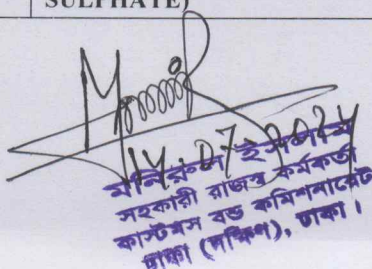 SULPHATE)
14.07.2024
মনিরুল ইসলাম
সহকারী রাজস্ব কর্মকর্তা
কাস্টমস বন্ড কমিশনারেট
ঢাকা (দক্ষিণ), ঢাকা।